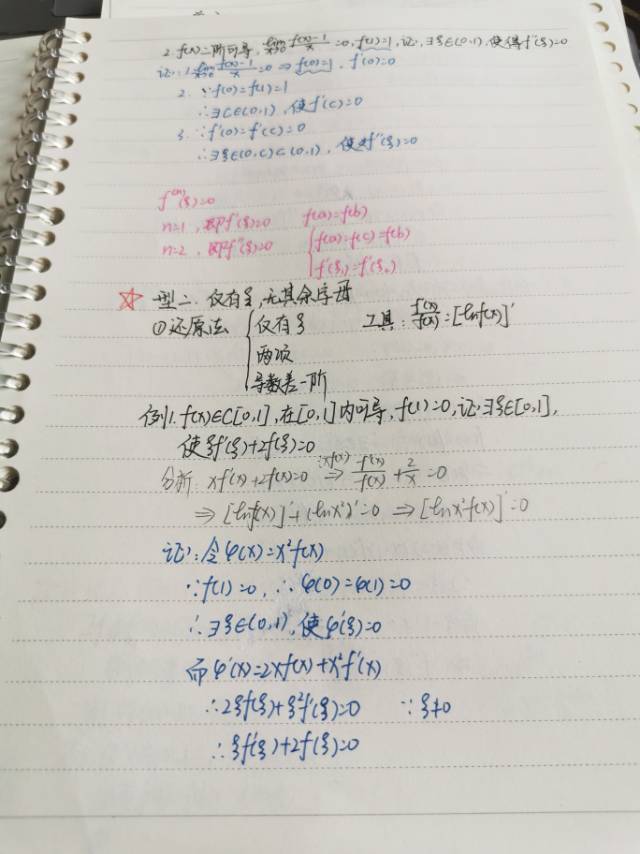 2. f(x)二阶可导, lim_{x→0} (f(x)-1)/x =0, f(1)=1, 证: ∃ξ∈(0,1), 使得f''(ξ)=0
证: 1. lim_{x→0} (f(x)-1)/x =0 ⇒ f(0)=1, f'(0)=0
2. ∵f(0)=f(1)=1
∴∃C∈(0,1), 使f'(C)=0
3. ∵f'(0)=f'(C)=0
∴∃ξ∈(0,C)⊂(0,1), 使f''(ξ)=0
f^(n)(ξ)=0
n=1, 即f'(ξ)=0 f(a)=f(b)
n=2, 即f''(ξ)=0 { f(a)=f(c)=f(b)
f'(ξ₁)=f'(ξ₂)
☆ 型二. 仅有ξ, 无其余字母
①还原法 { 仅有ξ 工具: f'(x)/f(x) = [ln f(x)]'
两项
导数差一阶
例1. f(x)∈C[0,1], 在[0,1]内可导, f(1)=0, 证: ∃ξ∈[0,1],
使ξf'(ξ)+2f(ξ)=0
分析 xf'(x)+2f(x)=0 ÷xf(x) ⇒ f'(x)/f(x) + 2/x =0
⇒ [ln f(x)]'+(ln x²)'=0 ⇒ [ln x²f(x)]'=0
证: 令φ(x)=x²f(x)
∵f(1)=0, ∴φ(0)=φ(1)=0
∴∃ξ∈(0,1), 使φ'(ξ)=0
而φ'(x)=2xf(x)+x²f'(x)
∴2ξf(ξ)+ξ²f'(ξ)=0 ∵ξ≠0
∴ξf'(ξ)+2f(ξ)=0